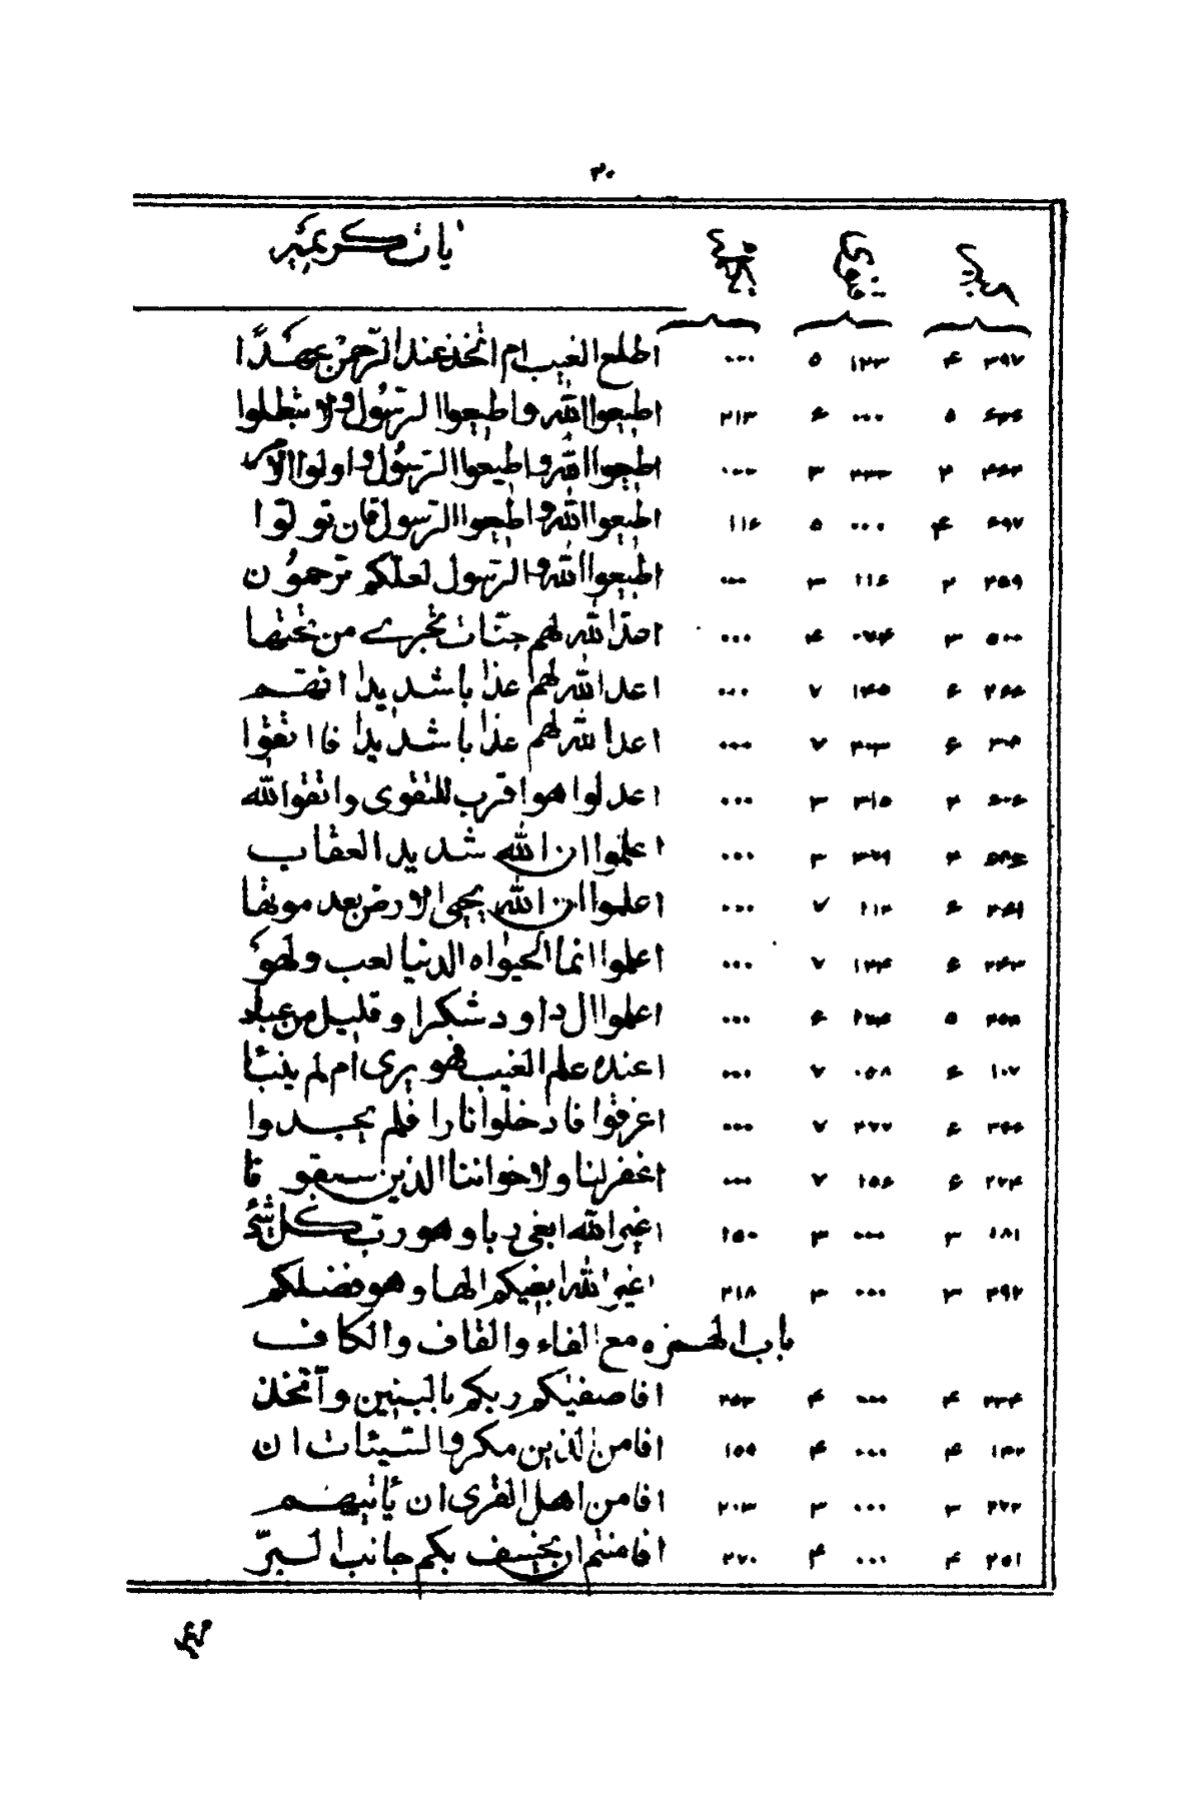 ۳۰
ایات کریمه
۳۹۷ ۴ ۱۲۳ ۵ ۰۰۰ اطلع الغیب ام اتخذ عند الرّحمن عهدًا
۵ ۰۰۰ ۶ ۲۱۳ اطیعوا الله و اطیعوا الرّسُول ولا تبطلوا
۲ ۳ ۰۰۰ اطیعوا الله و اطیعوا الرّسُول و اولوا الا
۶۹۷ ۴ ۰۰۰ ۵ ۱۱۶ اطیعوا الله و اطیعوا الرّسول فان تولّوا
۲۵۹ ۲ ۱۱۶ ۳ ۰۰۰ اطیعوا الله و الرّسول لعلّکم ترحمُون
۵۰۰ ۳ ۰۷۴ ۴ ۰۰۰ اعدّ الله لهم جنّات تجری من تحتها
۲۶۶ ۶ ۱۴۵ ۷ ۰۰۰ اعد الله لهم عذابا شدیدا انهم
۶ ۳۰۳ ۷ ۰۰۰ اعد الله لهم عذابا شدیدا فااتقوا
۶۰۶ ۲ ۳۱۵ ۳ ۰۰۰ اعدلوا هو اقرب للتقوی و اتقوا لله
۲ ۳۷۹ ۳ ۰۰۰ اعلموا ان الله شدید العقاب
۶ ۱۱۲ ۷ ۰۰۰ اعلموا ان الله یحیی الارض بعد موتها
۲۴۳ ۶ ۱۳۴ ۷ ۰۰۰ اعلموا انما الحیواه الدنیا لعب ولهوٌ
۲۵۸ ۵ ۱۷۴ ۶ ۰۰۰ اعلموا ال داود شکرا و قلیل من عباد
۱۰۷ ۶ ۰۵۸ ۷ ۰۰۰ اعنده علم الغیب فهو یری ام لم ینبّا
۳۶۶ ۶ ۲۷۷ ۷ ۰۰۰ اغرقوا فادخلوا نارا فلم یجدوا
۲۷۴ ۶ ۱۵۶ ۷ ۰۰۰ اغفر لنا ولاخواننا الذین سبقونا
۱۸۱ ۳ ۰۰۰ ۳ ۱۵۰ اغیر الله ابغی ربا و هو ربّ کل شئ
۲۹۲ ۳ ۰۰۰ ۳ ۲۱۸ اغیر الله ابغیکم الها و هو فضلکم
باب الهمزه مع الفاء والقاف والکاف
۲۳۴ ۴ ۰۰۰ ۴ ۲۵۳ افاصفیٰکم ربکم بالبنین و اتّخذ
۱۳۲ ۴ ۰۰۰ ۴ ۱۵۵ افامن الذین مکروا السّیئات ان
۲۷۲ ۳ ۰۰۰ ۳ ۲۰۳ افامن اهل القری ان یأتیهم
۲۵۱ ۴ ۰۰۰ ۴ ۲۷۰ افامنتم ان یخسف بکم جانب البرّ